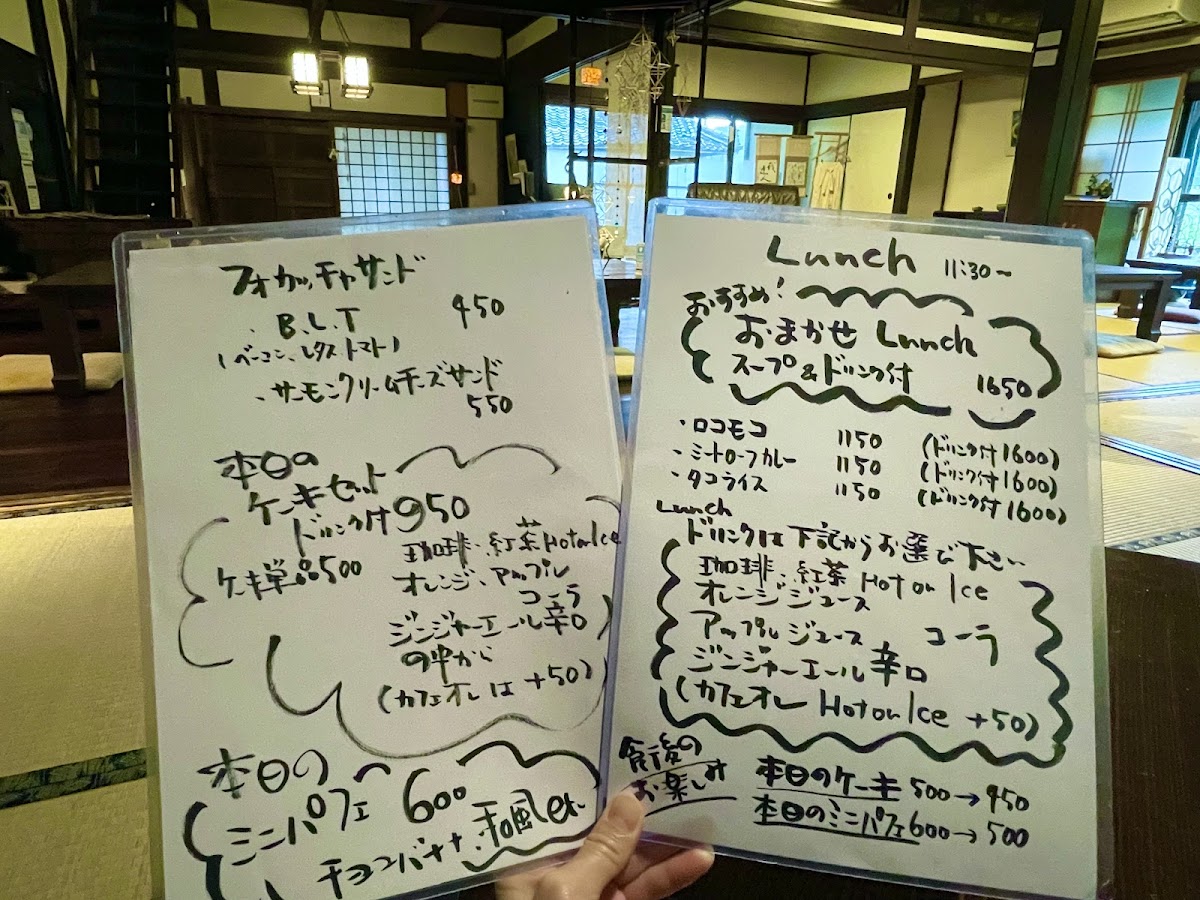 フォカッチャサンド
・B.L.T 450
(ベーコン、レタス、トマト)
・サーモンクリームチーズサンド
550
本日の
ケーキセット
ドリンク付 950
ケーキ単品 500
珈琲、紅茶 Hot or Ice
オレンジ、アップル
コーラ
ジンジャーエール辛口
の中から
(カフェオレは +50)
本日の
ミニパフェ 600
チョコバナナ、和風 etc.
Lunch 11:30〜
おすすめ!
おまかせ Lunch
スープ&ドリンク付 1650
・ロコモコ 1150 (ドリンク付 1600)
・ミートローフカレー 1150 (ドリンク付 1600)
・タコライス 1150 (ドリンク付 1600)
Lunch
ドリンクは下記からお選び下さい
珈琲、紅茶 Hot or Ice
オレンジジュース
アップルジュース コーラ
ジンジャーエール辛口
(カフェオレ Hot or Ice +50)
食後の
お楽しみ
本日のケーキ 500→450
本日のミニパフェ 600→500